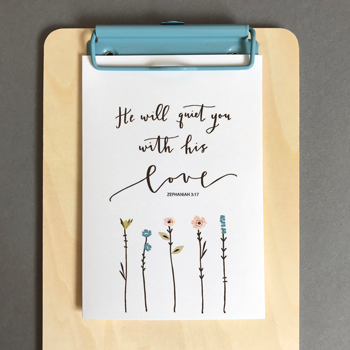 He will quiet you
with his
love
ZEPHANIAH 3:17